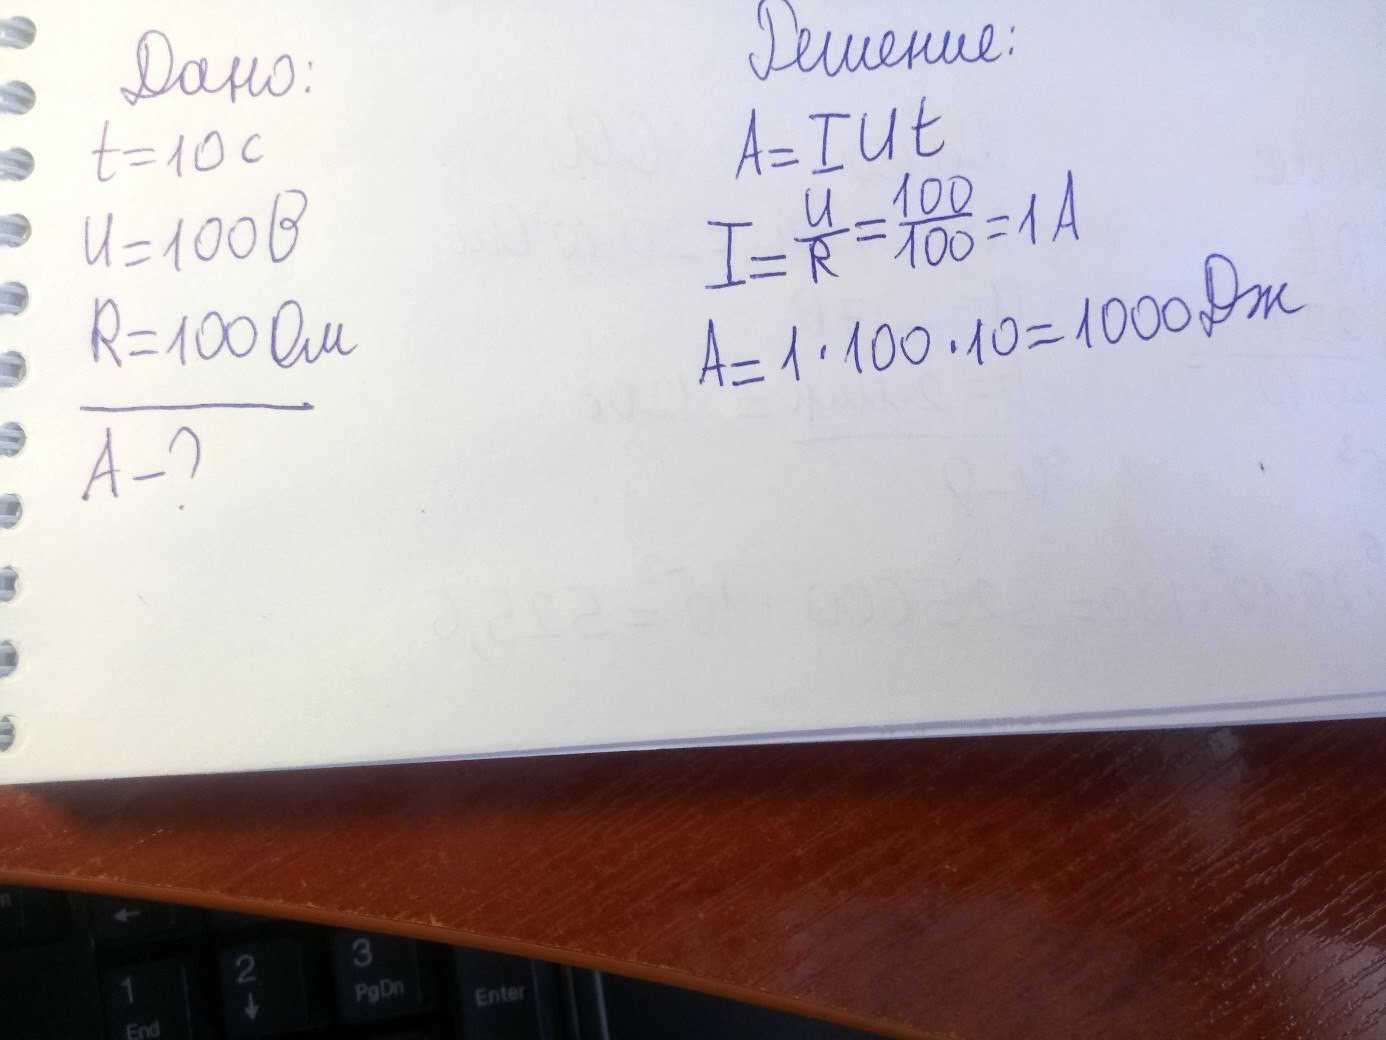 Дано:
t=10 с
U=100В
R=100 Ом
A-?
Решение:
A=IUt
I=U/R=100/100=1A
A=1·100·10=1000Дж
1
End
2
↓
3
PgDn
Enter
←